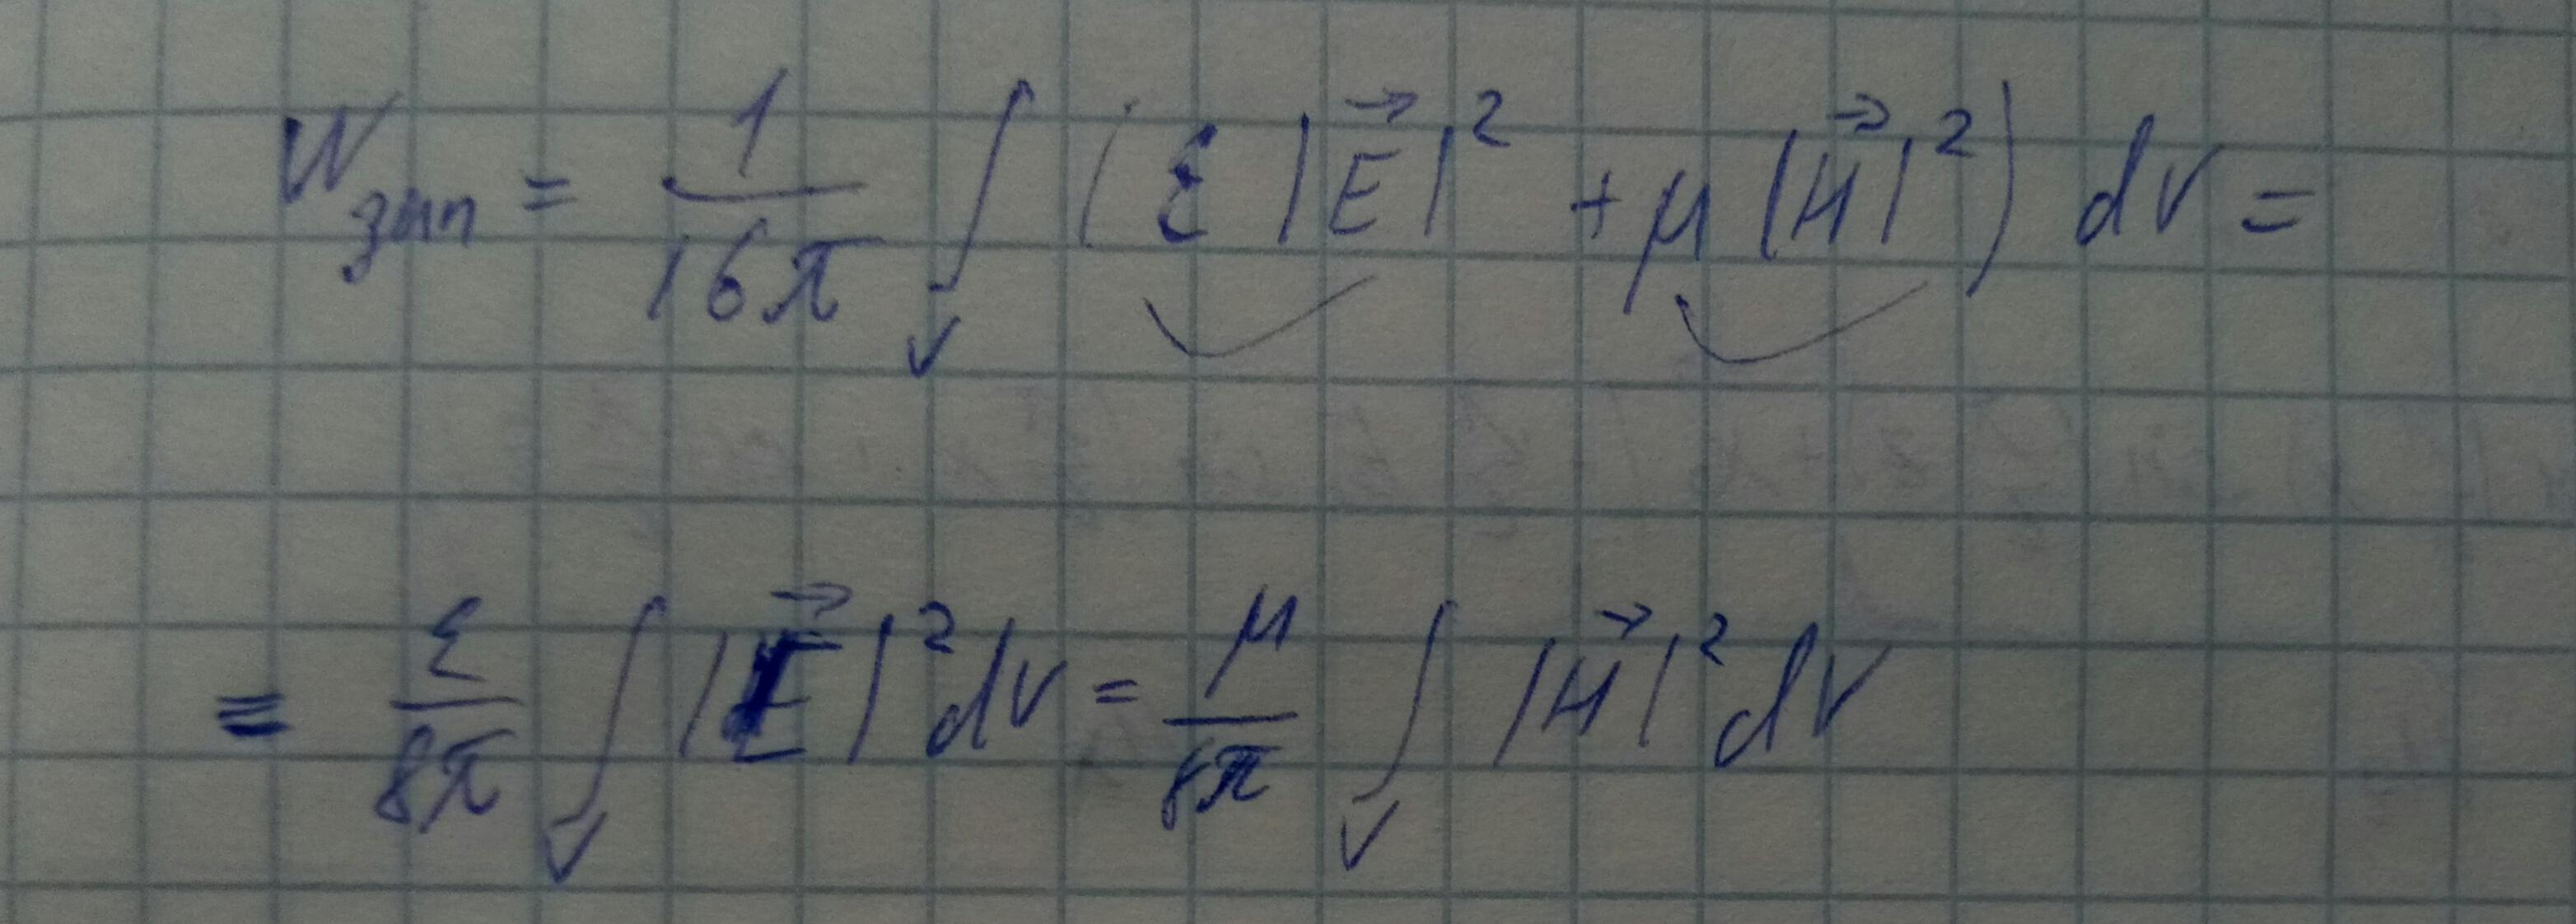 W_зап = 1/16π ∫_V (ε |E⃗|² + μ |H⃗|²) dV =
= ε/8π ∫_V |E⃗|² dV = μ/8π ∫_V |H⃗|² dV